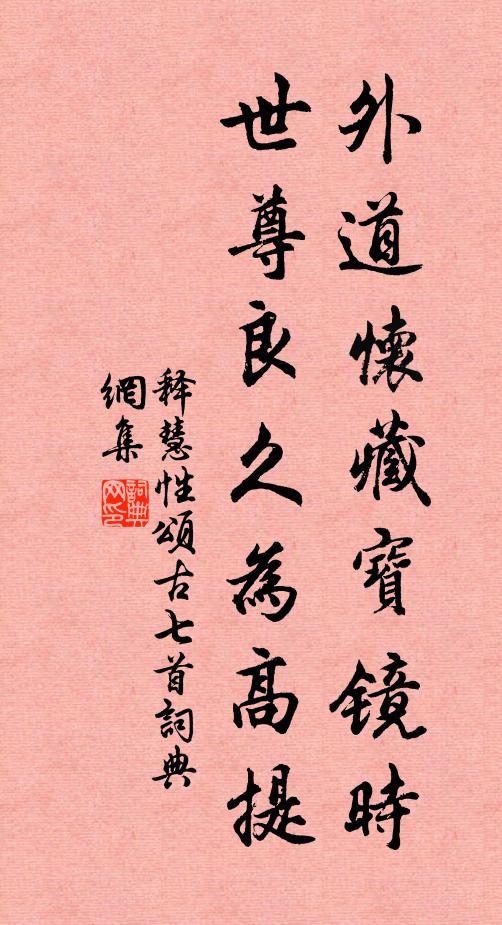 外道懷藏寶鏡時
世尊良久為高提
释慧性頌古七首詞典
網集
詞典網印